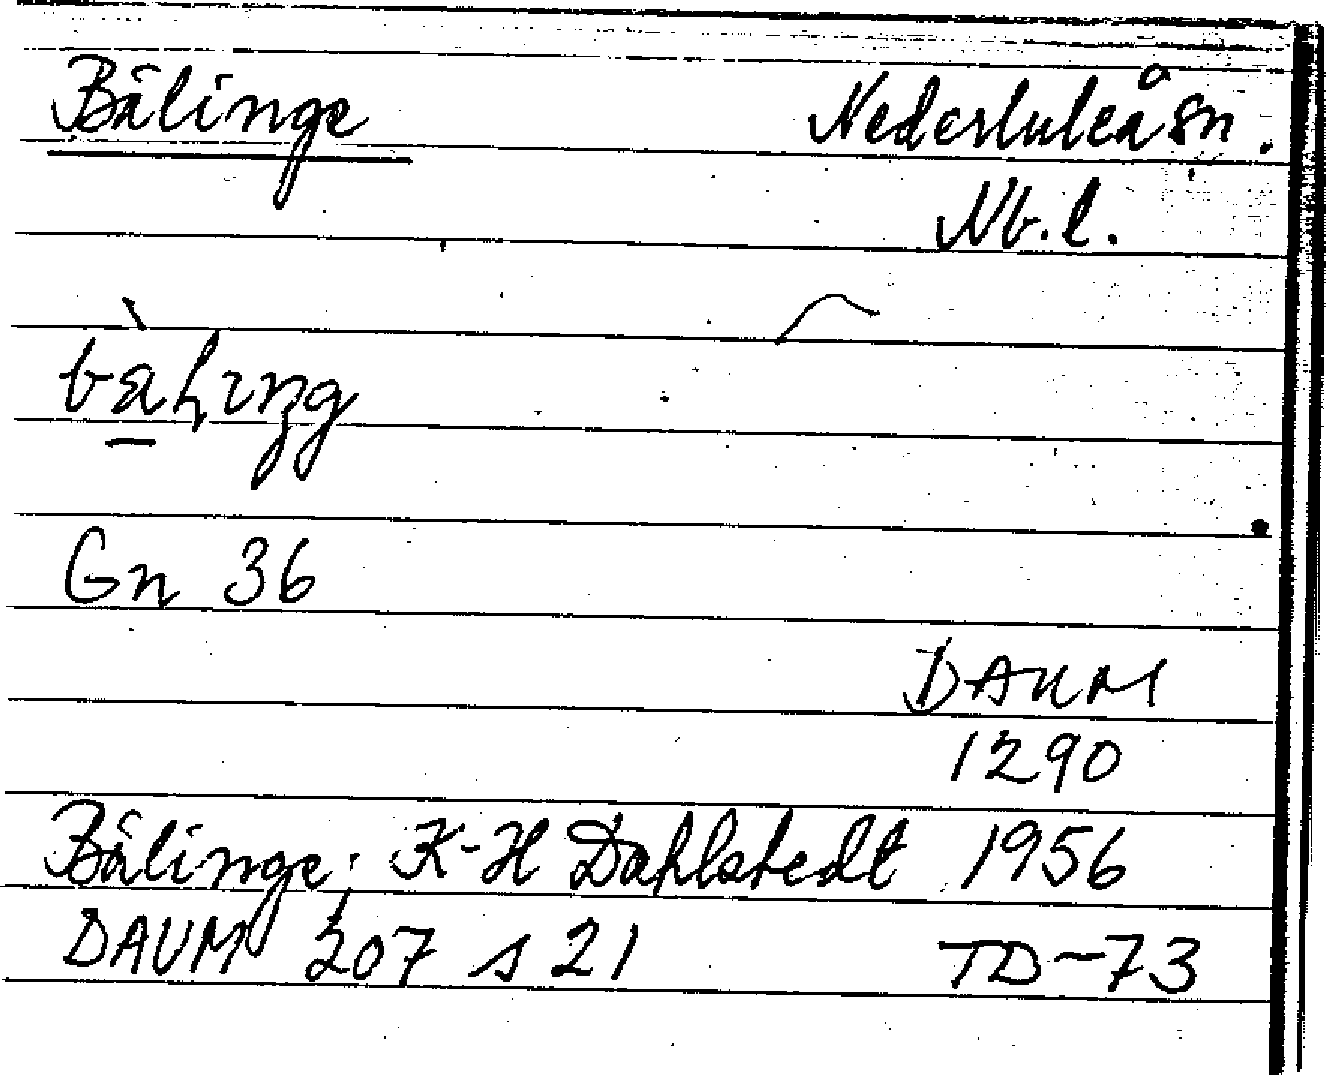 Bälinge Nederluleå sn.
Nb. l.
Gn 36
DAUM
1290
Bälinge; K-H Dahlstedt 1956
DAUM 207 s 21 TD-73